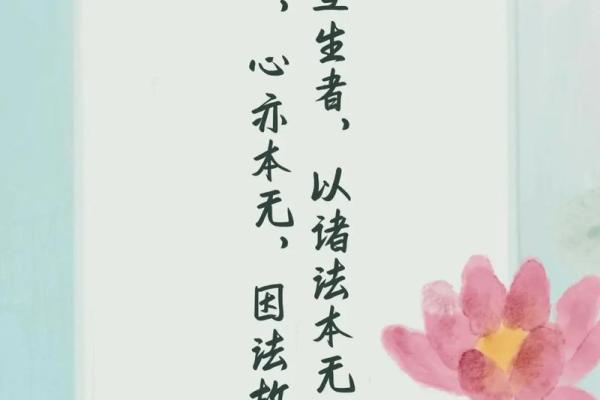 生者，以诸法本无
，心亦本无，因法故